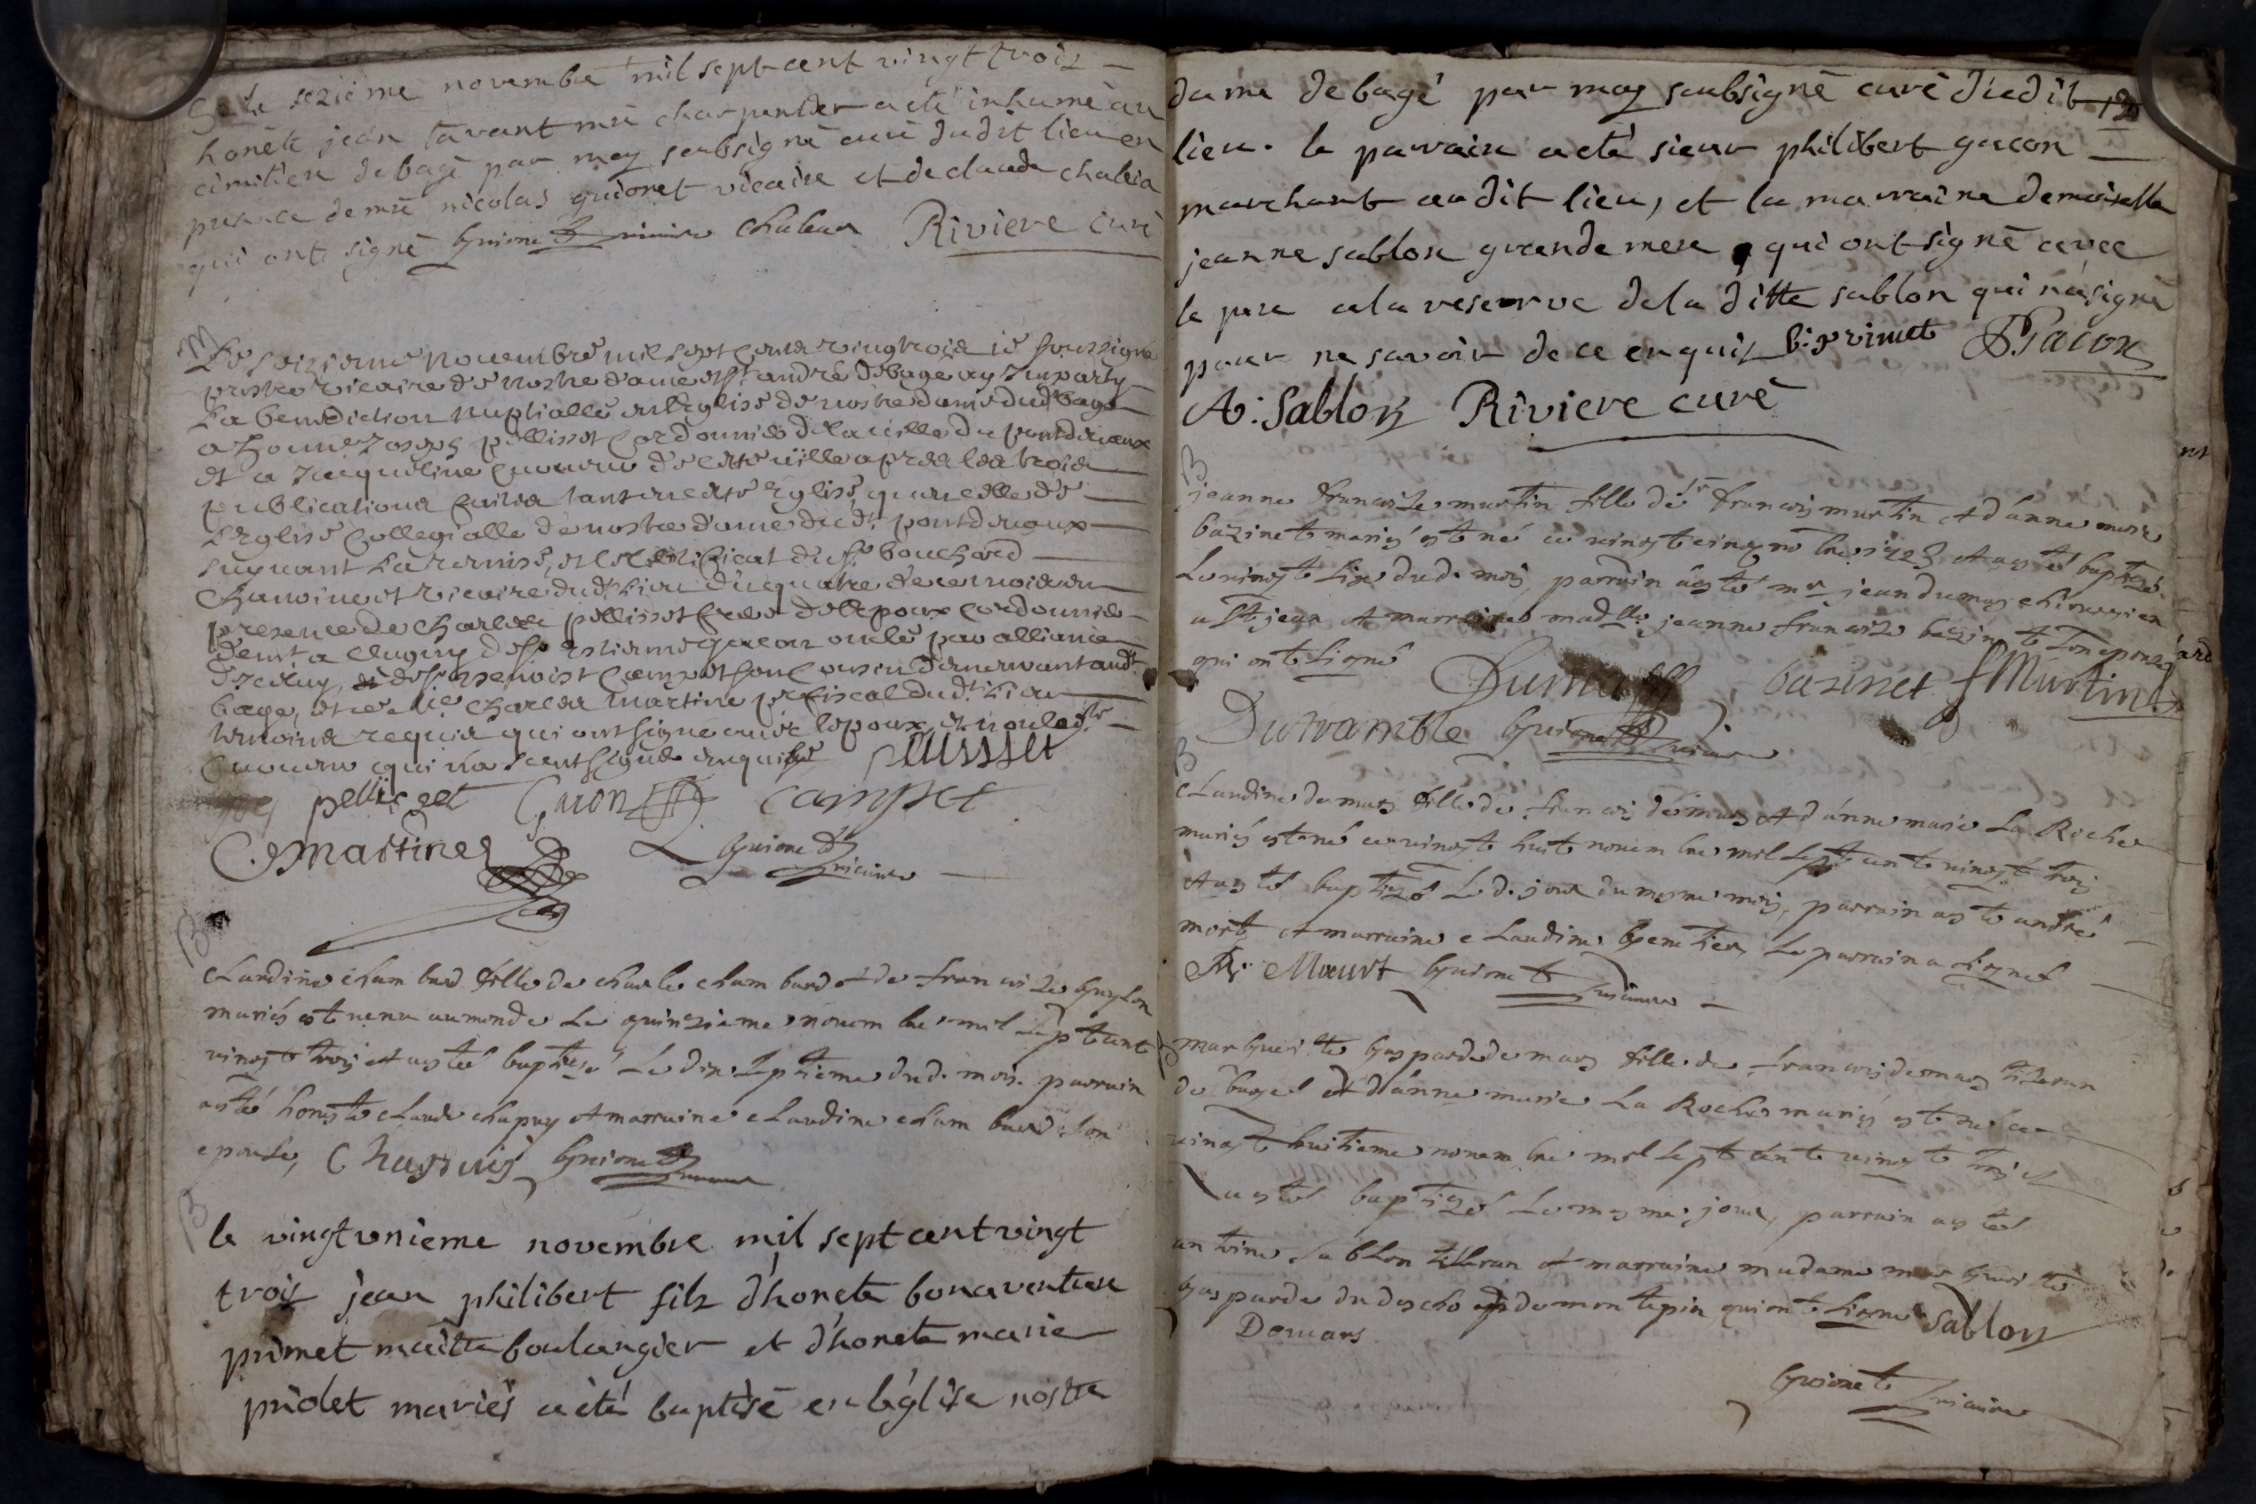 S le sezieme novembre mil sept cent vingt trois
honete jean tavant mre charpentier a été inhumé au
cimitiere de bagé par moy soubsigné curé dudit lieu en
presence de mre nicolas guionet vicaire et de claude chaleia
qui ont signé Guionet vicaire Chaleua Riviere curé
M
Le seizieme novembre mil sept cents vingtrois ie soussigné
prestre vicaire de nostre dame et st andré de bage ay Imparty
La benediction nuptialle en l'eglise de nostre dame dud bagé
a honneste Joseph pellisset Cordonnier de la ville du pontdevaux
et a Jacqueline de cette ville apres les trois
publications faites tant en cette Eglise qu'en celle de
L'eglise Collegialle de nostre dame du dt pontdevaux
suyvant La remise, et Certificat du sr bouchard
Chanoine et vicaire du dt Lieu du quatre de ce mois en
presence de Charles pellisset frere de l'epoux Cordonnier
demt a Clugny, de sr Estienne gacon oncle par alliance
de st benoist Campet son Cousin demeurant audt
bage, et de Me Charles martine pr fiscal dudt Lieu
temoins requis qui ont signé avec l'epoux, et non lade
qui n'a sceut signer enquise pellisset
pellisset Gacon campet
C. Martine Guionet vicaire
B
Claudine chambard fille de charle chambard et de francoise Guyson
mariés est venu au monde Le quinzieme novembre mil sept cent
vingt trois et a esté baptisé Le dix septieme dud. mois parrain
a esté honeste claude chapuy et marraine claudine chambard son
epouse, Chapuis Guionet vicaire
B
le vingt unieme novembre mil sept cent vingt
trois jean philibert fils d'honete bonaventure
primet maitre boulangier et d'honete marie
pridet mariés a été baptisé en l'église nostre
dame de bagé par moy soubsigné curé dudit
lieu. le parrain a eté sieur philibert gacon
marchant audit lieu, et la marraine demoiselle
jeanne sablon grande mere qui ont signé avec
le pere a la reserve de la ditte sablon qui n'a signé
pour ne savoir de ce enquis b. primet P Gacon
A. Sablon Riviere curé
B
jeanne francoise martin fille de sr francois martin et d'anne marie
bazinet mariés est né ce vingt cinq novbre 1723 et a esté baptisé
Le vingt six dud. mois, parrain a esté mr jean dumas chirurgien
a St jean et marraine madlle jeanne francoise bazinet son epouse
qui ont signé Dumas bazinet f Martin
Dutramble Guionet vicaire
B
Claudine demars fille de francois demars et d'anne marie La Roche
mariés est né ce vingt huit novembre mil sept cent vingt trois
et a esté baptizé Le d. jour du mesme mois, parrain a esté andré
mort et marraine claudine Gentier, Le parrain a signé
A. Maurt Guionet vicaire
B
marguerite Gasparde demars fille de francois demars tisseran
de bagé et d'anne marie La Roche mariés est né ce
vingt huitieme novembre mil sept cent vingt trois et
a esté baptisé Le mesme jour, parrain a esté
antoine Sablon tisseran et marraine madame marguerite
Gasparde de montepin qui ont signé Sablon
Demars
Guionet vicaire